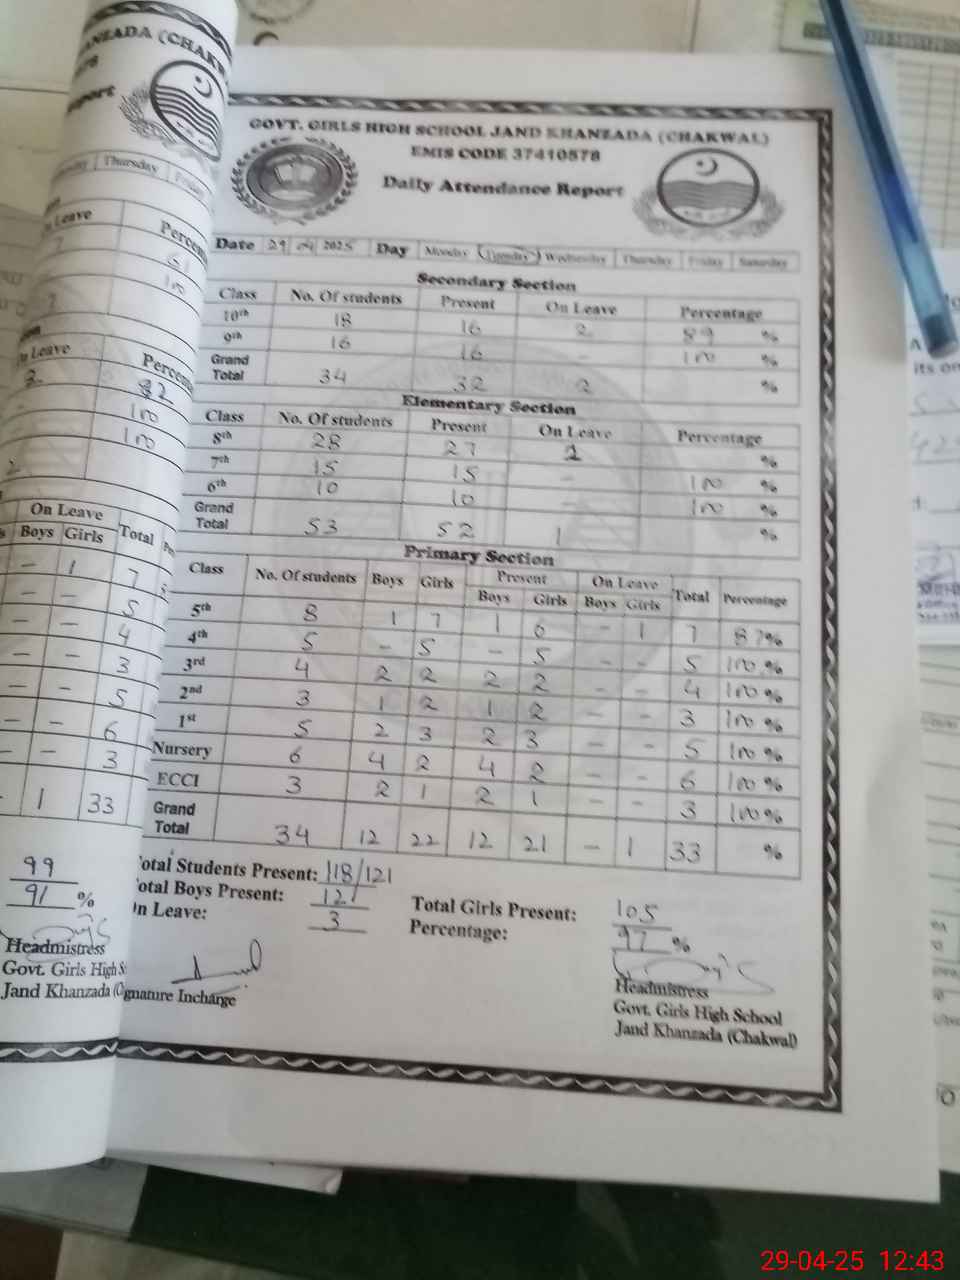 ANZADA (CHAKW
eport
Thursday
On Leave
Percen
61
100
On Leave
Percen
3
82
100
100
On Leave
Boys Girls Total
- 1 7
- - 5
- - 4
- - 3
- - 5
- - 6
- - 3
- 1 33
99
91 %
Headmistress
Govt. Girls High S
Jand Khanzada (C
GOVT. GIRLS HIGH SCHOOL JAND KHANZADA (CHAKWAL)
EMIS CODE 37410578
Daily Attendance Report
Date 29 04 2025 Day Monday Tuesday Wednesday Thursday Friday Saturday
Secondary Section
Class No. Of students Present On Leave Percentage
10th 18 16 2 89 %
9th 16 16 - 100 %
Grand Total 34 32 2 %
Elementary Section
Class No. Of students Present On Leave Percentage
8th 28 27 1 %
7th 15 15 - 100 %
6th 10 10 - 100 %
Grand Total 53 52 1 %
Primary Section
Class No. Of students Boys Girls Present On Leave Total Percentage
Boys Girls Boys Girls
5th 8 1 7 1 6 - 1 7 87%
4th 5 - 5 - 5 - - 5 100%
3rd 4 2 2 2 2 - - 4 100%
2nd 3 1 2 1 2 - - 3 100%
1st 5 2 3 2 3 - - 5 100%
Nursery 6 4 2 4 2 - - 6 100%
ECCI 3 2 1 2 1 - - 3 100%
Grand Total 34 12 22 12 21 - 1 33 %
otal Students Present: 118/121
otal Boys Present: 12
n Leave: 3
Total Girls Present: 105
Percentage: 97 %
gnature Incharge
Headmistress
Govt. Girls High School
Jand Khanzada (Chakwal)
29-04-25 12:43